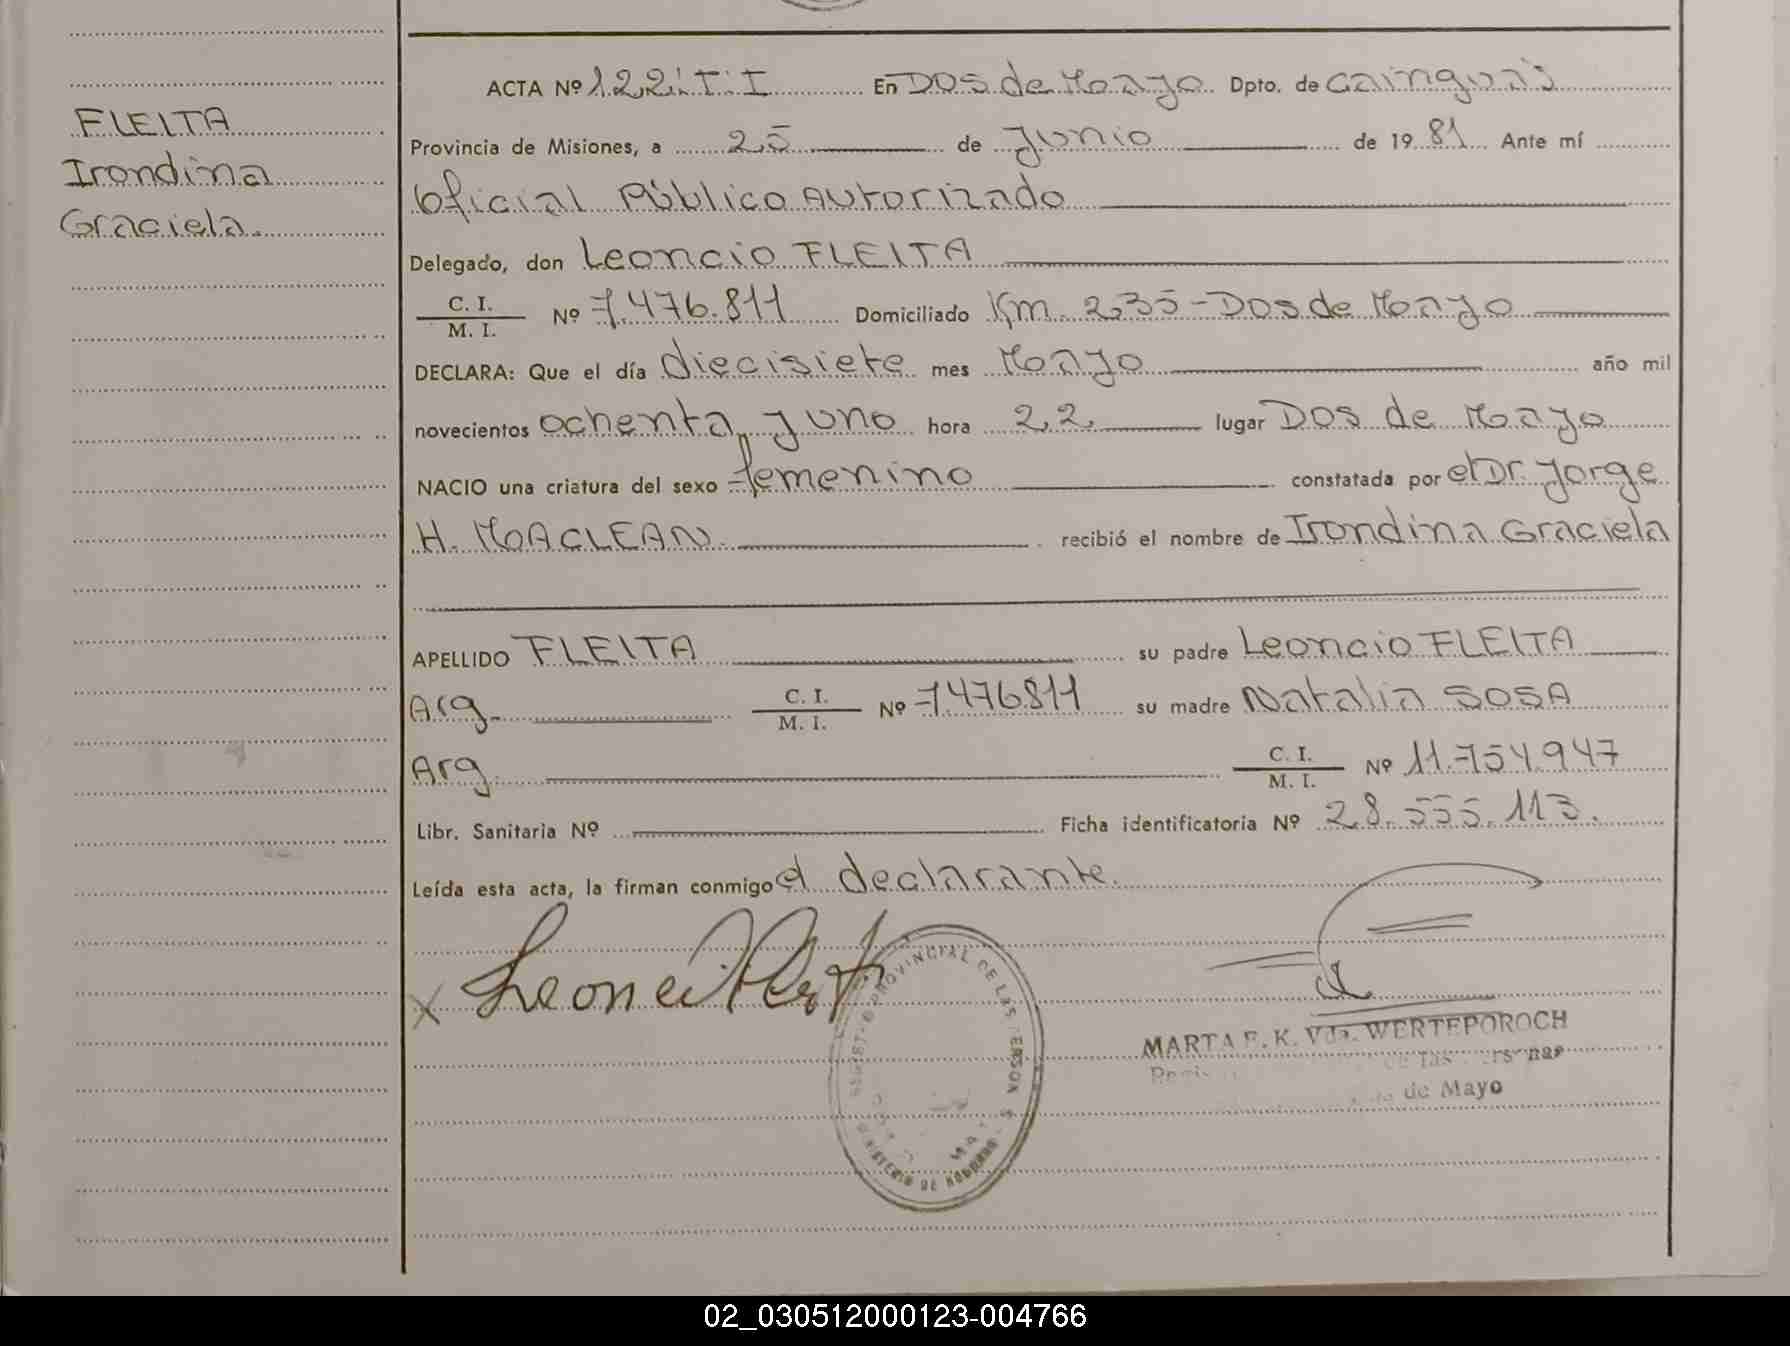 FLEITA
Irondina
Graciela.
ACTA Nº 122 T: I En Dos de Mayo Dpto. de Cainguás
Provincia de Misiones, a 25 de Junio de 1981 Ante mí
Oficial Público Autorizado
Delegado, don Leoncio FLEITA
C. I.
M. I. Nº 7.476.811 Domiciliado Km. 235 - Dos de Mayo
DECLARA: Que el día diecisiete mes Mayo año mil
novecientos ochenta y uno hora 22 lugar Dos de Mayo
NACIO una criatura del sexo femenino constatada por el Dr. Jorge
H. MACLEAN. recibió el nombre de Irondina Graciela
APELLIDO FLEITA su padre Leoncio FLEITA
Arg. C. I.
M. I. Nº 7476811 su madre Natalia SOSA
Arg. C. I.
M. I. Nº 11.754.947
Libr. Sanitaria Nº Ficha identificatoria Nº 28.555.113.
Leída esta acta, la firman conmigo el declarante.
X
PROVINCIAL DE LAS
MARTA E. K. Vda. WERTEPOROCH
de Mayo
02_030512000123-004766